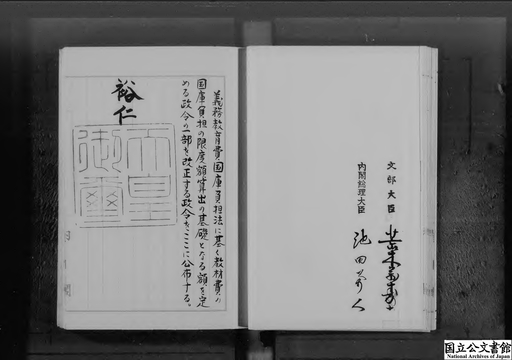 義務教育費国庫負担法に基く教材費の
国庫負担の限度額算出の基礎となる額を定
める政令の一部を改正する政令をここに公布する。
裕仁
天皇
御璽
文部大臣
内閣総理大臣 池田勇人
国立公文書館
National Archives of Japan